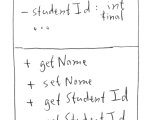 - studentId : int
final
...
+ getName
+ setName
+ getStudentId